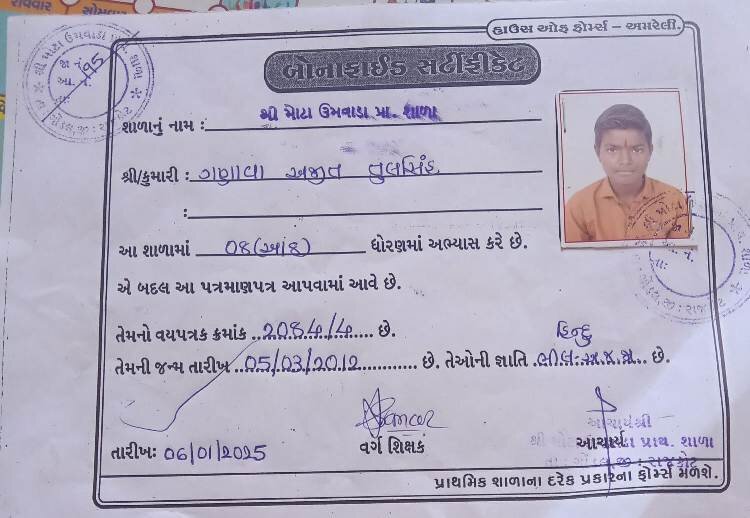 રવિવાર સોમવાર
હાઉસ ઓફ ફોર્મ્સ – અમરેલી.
બોનાફાઈડ સર્ટીફીકેટ
શાળાનું નામ : શ્રી મોટા ઉમવાડા પ્રા. શાળા
શ્રી/કુમારી : ગણાવા અજીત તુલસિંહ
:
આ શાળામાં 08 (આઠ) ધોરણમાં અભ્યાસ કરે છે.
એ બદલ આ પત્રમાણપત્ર આપવામાં આવે છે.
તેમનો વયપત્રક ક્રમાંક .. .... છે.
હિન્દુ
તેમની જન્મ તારીખ ..05/03/2012............ છે. તેઓની જાતિ .ભીલ. છે.
આચાર્યશ્રી
તારીખઃ 06/01/2025 વર્ગ શિક્ષક આચાર્ય
પ્રાથ. શાળા
પ્રાથમિક શાળાના દરેક પ્રકારના ફોર્મ્સ મળશે.